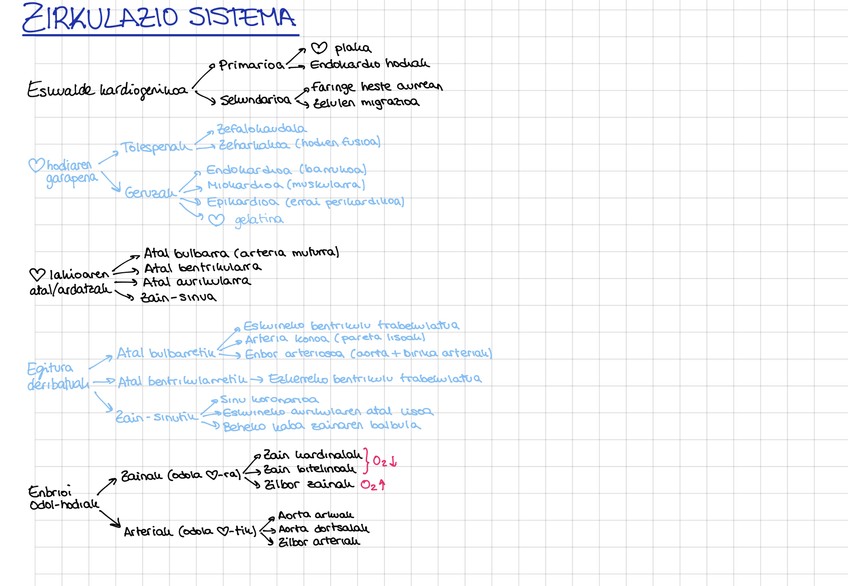 ZIRKULAZIO SISTEMA
Eskualde kardiogenikoa
Primarioa
♡ plaka
Endokardio hodiak
Sekundarioa
Faringe heste aurrean
Zelulen migrazioa
♡ hodiaren garapena
Tolespenak
Zefalokaudala
Zeharkakoa (hodien fusioa)
Geruzak
Endokardioa (barrukoa)
Miokardioa (muskularra)
Epikardioa (errai perikardikoa)
♡ gelatina
♡ lakioaren
atal/ardatzak
Atal bulbarra (arteria muturra)
Atal bentrikularra
Atal aurikularra
Zain-sinua
Egitura
deribatuak
Atal bulbarretik
Eskuineko bentrikulu trabekulatua
Arteria konoa (pareta lisoak)
Enbor arteriosoa (aorta + birika arteriak)
Atal bentrikularretik → Ezkerreko bentrikulu trabekulatua
Zain-sinutik
Sinu koronarioa
Eskuineko aurikularen atal lisoa
Beheko kaba zainaren balbula
Enbrioi
Odol-hodiak
Zainak (odola ♡-ra)
Zain kardinalak
Zain bitelinoak
O2↓
Zilbor zainak O2↑
Arteriak (odola ♡-tik)
Aorta arkuak
Aorta dortsalak
Zilbor arteriak